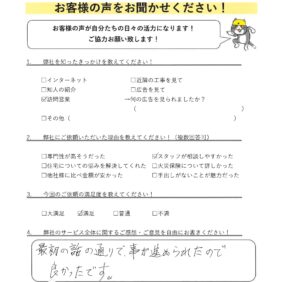 お客様の声をお聞かせください！
お客様の声が自分たちの日々の活力になります！
ご協力お願い致します！
1. 弊社を知ったきっかけを教えてください！
□インターネット □近隣の工事を見て
□知人の紹介 □広告を見て
☑訪問営業 →何の広告を見られましたか？
( )
□その他 ( )
2. 弊社にご依頼いただいた理由を教えてください！（複数回答可）
□専門性が高そうだった ☑スタッフが相談しやすかった
□住宅についての悩みを解決してくれた □火災保険について詳しかった
□他社様に比べ金額が安かった □手出しがないことが魅力だった
3. 今回のご依頼の満足度を教えてください！
□大満足 ☑満足 □普通 □不満
4. 弊社のサービス全体に関するご感想・ご意見を自由にお書きください！
最初の話の通りで、事が進められたので
良かったです。